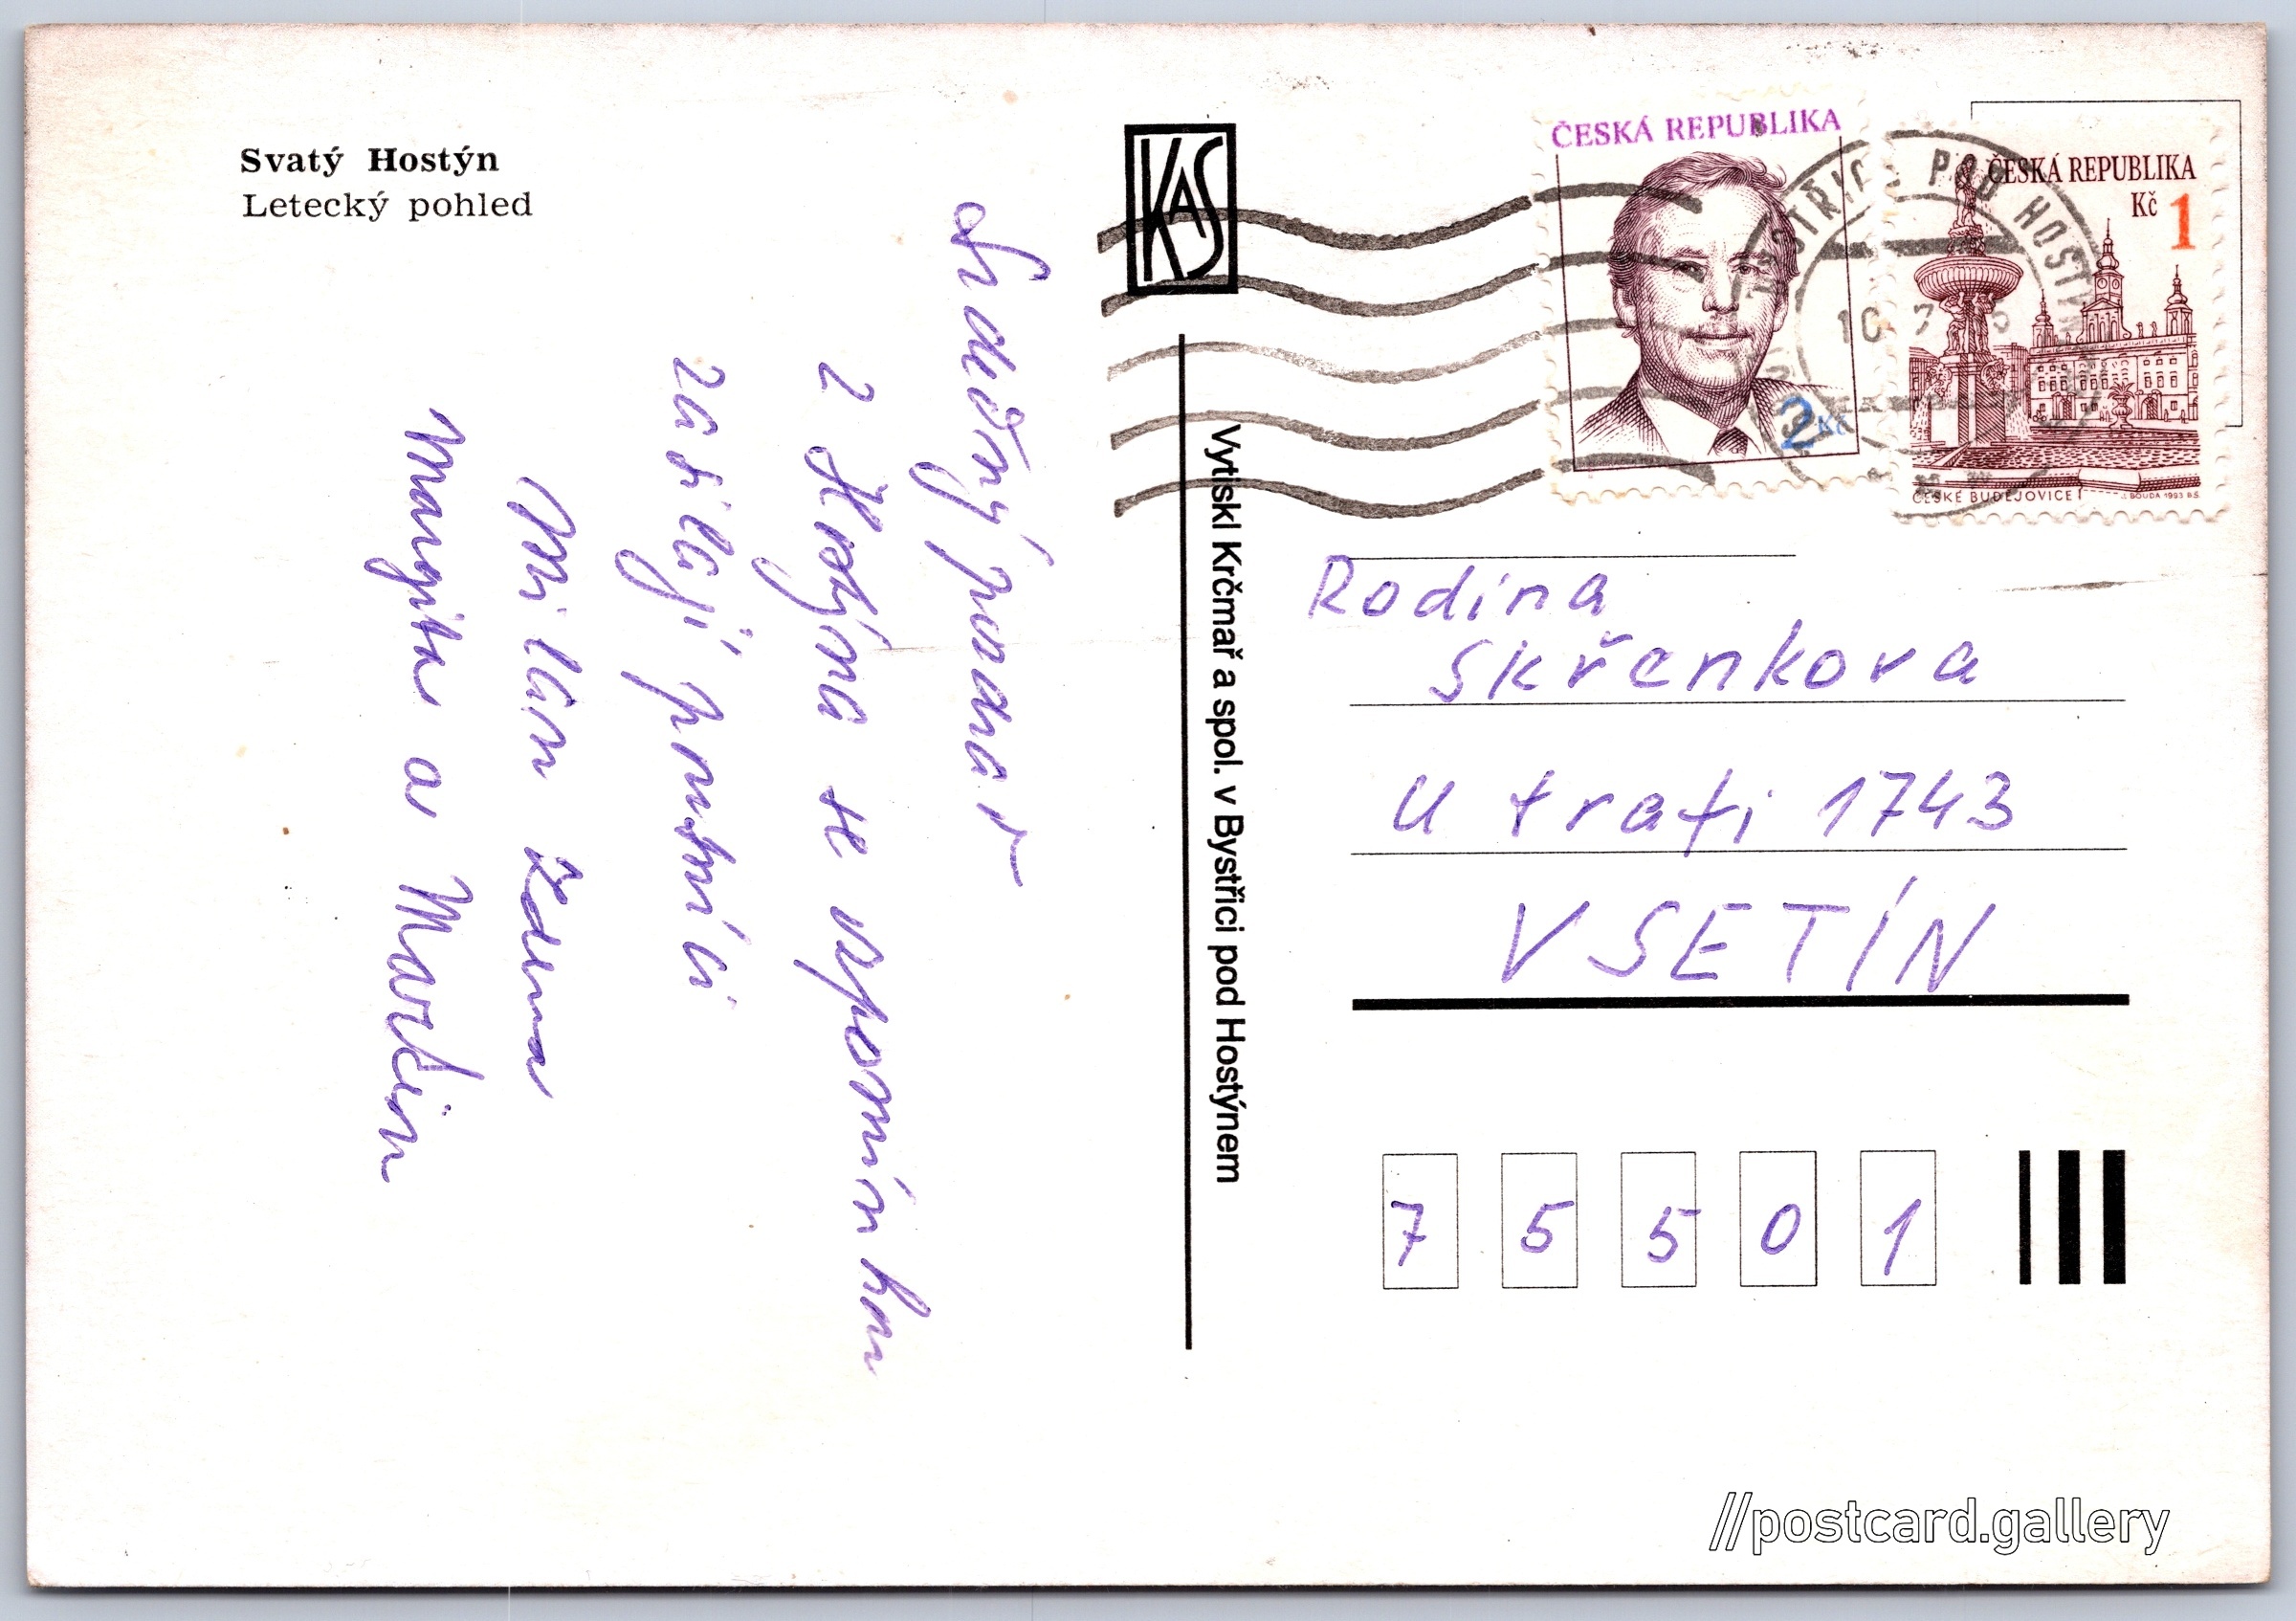 Svatý Hostýn
Letecký pohled
KAS
Srdečný pozdrav
z Hostýna se vzpomínkou
zasílají poutníci
Milan Zdena
Margita a Martin
Vytiskl Krčmař a spol. v Bystřici pod Hostýnem
ČESKÁ REPUBLIKA
2 Kč
ČESKÁ REPUBLIKA
Kč 1
ČESKÉ BUDĚJOVICE
J. BOUDA 1993 BŠ.
POD HOSTÝNEM
Rodina
Skřenkova
U trati 1743
VSETÍN
7 5 5 0 1
//postcard.gallery